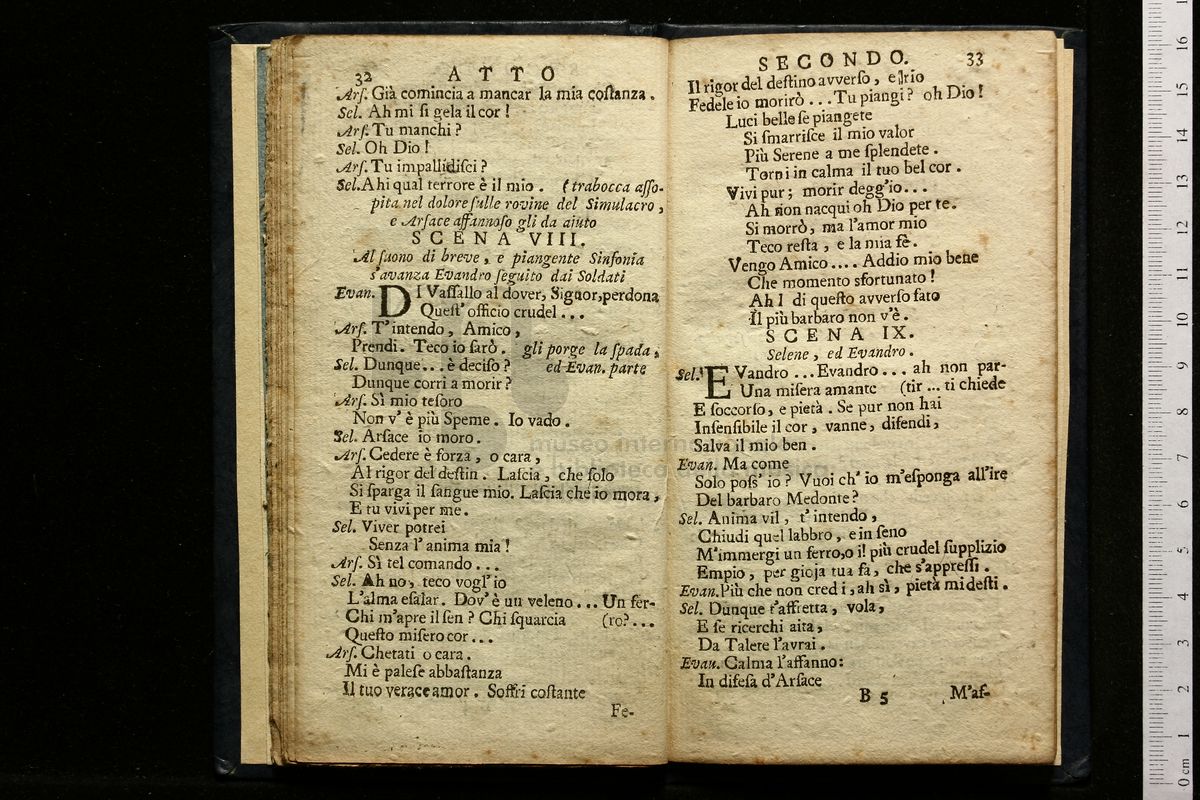 32 ATTO
Arſ. Già comincia a mancar la mia coſtanza.
Sel. Ah mi ſi gela il cor!
Arſ. Tu manchi?
Sel. Oh Dio!
Arſ. Tu impallidiſci?
Sel. Ahi qual terrore è il mio. (trabocca aſſo-
pita nel dolore ſulle rovine del Simulacro,
e Arſace affannoſo gli da aiuto
SCENA VIII.
Al ſuono di breve, e piangente Sinfonia
s'avanza Evandro ſeguito dai Soldati
Evan. DI Vaſſallo al dover, Signor, perdona
Queſt' officio crudel...
Arſ. T'intendo, Amico,
Prendi. Teco io ſarò. gli porge la ſpada,
Sel. Dunque... è deciſo? ed Evan. parte
Dunque corri a morir?
Arſ. Sì mio teſoro
Non v'è più Speme. Io vado.
Sel. Arſace io moro.
Arſ. Cedere è forza, o cara,
Al rigor del deſtin. Laſcia, che ſolo
Si ſparga il ſangue mio. Laſcia che io mora,
E tu vivi per me.
Sel. Viver potrei
Senza l'anima mia!
Arſ. Sì tel comando...
Sel. Ah no, teco vogl'io
L'alma eſalar. Dov'è un veleno... Un fer-
Chi m'apre il ſen? Chi ſquarcia (ro?...
Queſto miſero cor...
Arſ. Chetati o cara.
Mi è paleſe abbaſtanza
Il tuo verace amor. Soffri coſtante
Fe-
SECONDO. 33
Il rigor del deſtino avverſo, e rio
Fedele io morirò... Tu piangi? oh Dio!
Luci belle ſe piangete
Si ſmarriſce il mio valor
Più Serene a me ſplendete.
Torni in calma il tuo bel cor.
Vivi pur; morir degg'io...
Ah non nacqui oh Dio per te.
Si morrò, ma l'amor mio
Teco reſta, e la mia fè.
Vengo Amico.... Addio mio bene
Che momento sfortunato!
Ah! di queſto avverſo fato
Il più barbaro non v'è.
SCENA IX.
Selene, ed Evandro.
Sel. EVandro... Evandro... ah non par-
Una miſera amante (tir... ti chiede
E ſoccorſo, e pietà. Se pur non hai
Inſenſibile il cor, vanne, difendi,
Salva il mio ben.
Evan. Ma come
Solo poſſ' io? Vuoi ch' io m'eſponga all'ire
Del barbaro Medonte?
Sel. Anima vil, t'intendo,
Chiudi quel labbro, e in ſeno
M'immergi un ferro, o il più crudel ſupplizio
Empio, per gioja tua fa, che s'appreſſi.
Evan. Più che non credi, ah sì, pietà mi deſti.
Sel. Dunque t'affretta, vola,
E ſe ricerchi aita,
Da Talete l'avrai.
Evan. Calma l'affanno:
In difeſa d'Arſace
B 5 M'aſ-